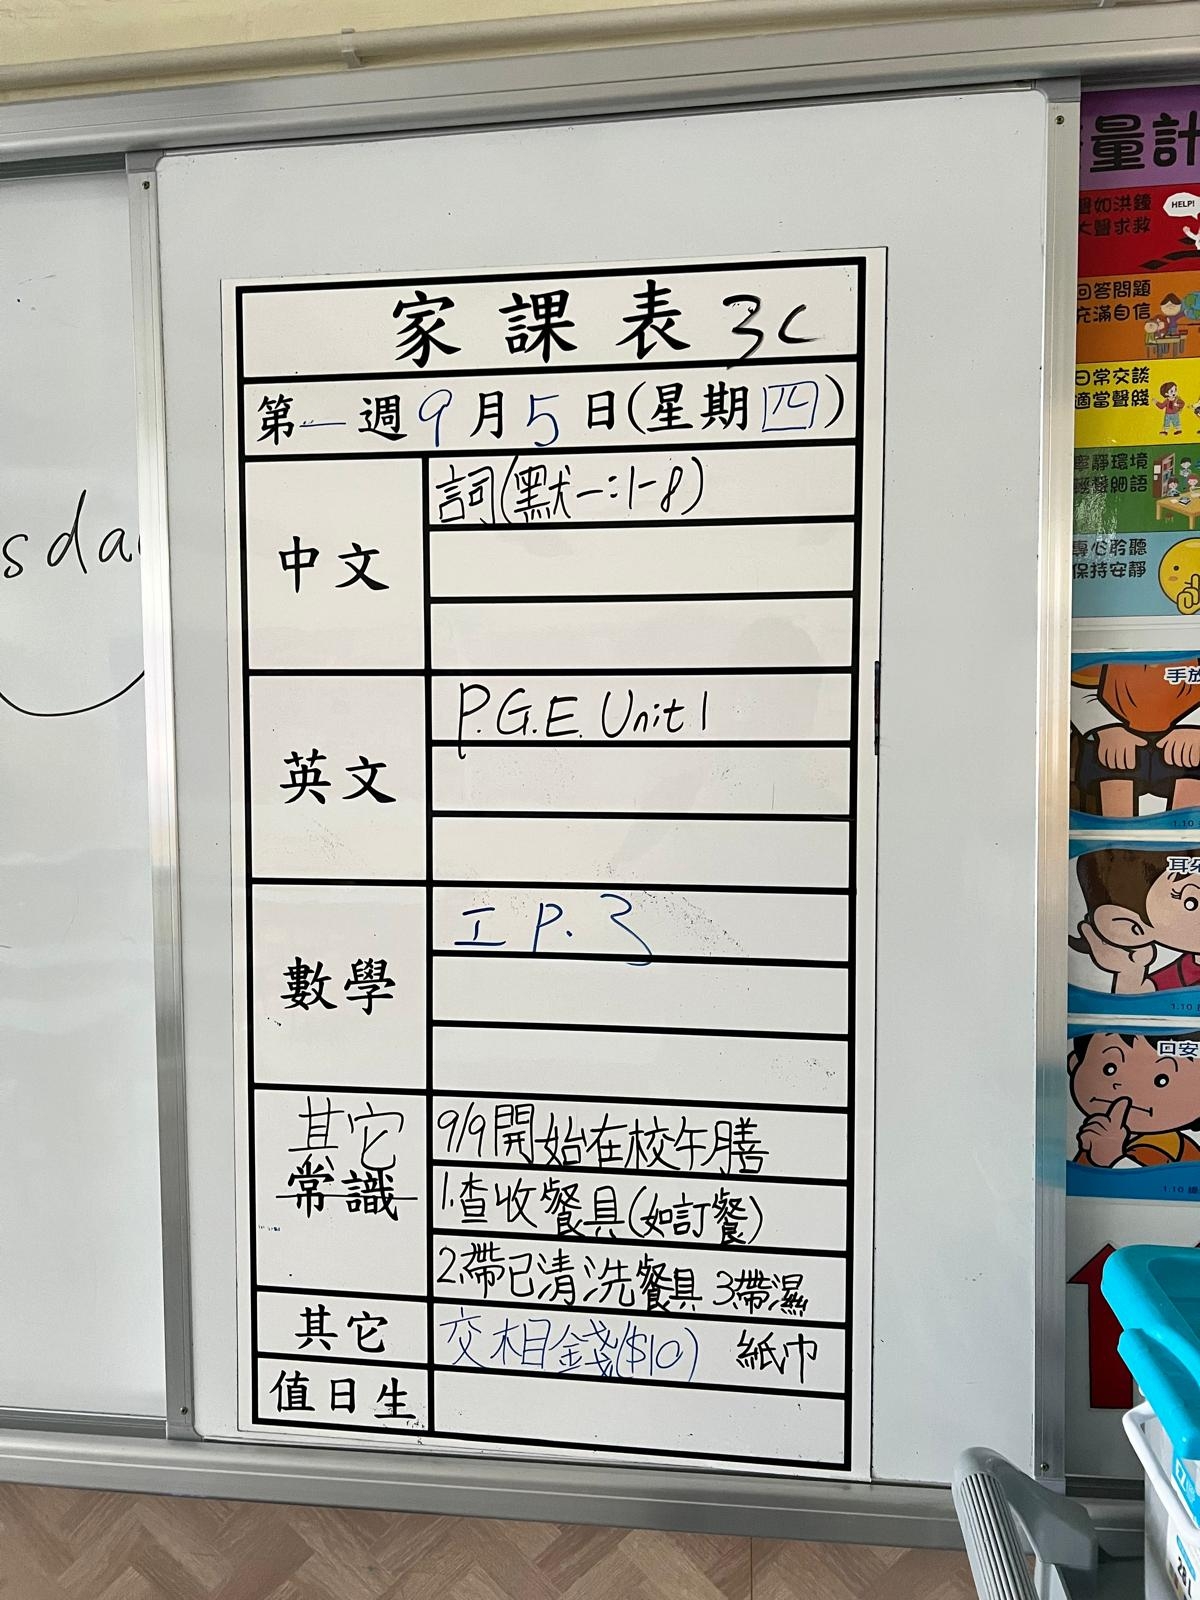 家課表 3C
第一週 9月5日(星期四)
中文
詞(默一:1-8)
英文
P.G.E. Unit 1
數學
工 P.3
其它
常識
9/9開始在校午膳
1.查收餐具(如訂餐)
2.帶已清洗餐具 3.帶濕
紙巾
其它
交相金錢($10)
值日生
sda
量計
聲如洪鐘
大聲求救
HELP!
回答問題
充滿自信
日常交談
適當聲綫
寧靜環境
輕聲細語
專心聆聽
保持安靜
手放
1.10
耳朵
1.10
口安
1.10
28L